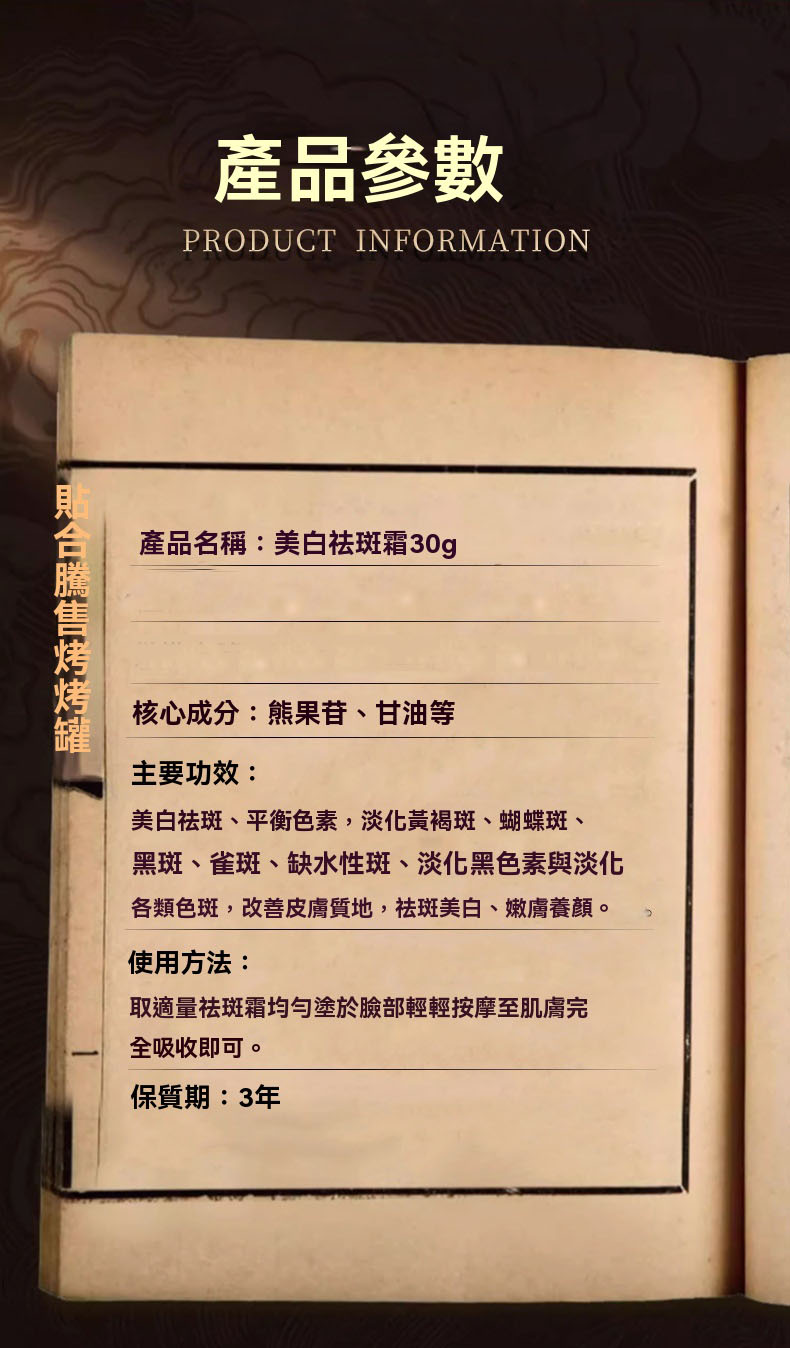 產品參數
PRODUCT INFORMATION
貼合騰售烤烤罐
產品名稱：美白祛斑霜30g
核心成分：熊果苷、甘油等
主要功效：
美白祛斑、平衡色素，淡化黃褐斑、蝴蝶斑、
黑斑、雀斑、缺水性斑、淡化黑色素與淡化
各類色斑，改善皮膚質地，祛斑美白、嫩膚養顏。
使用方法：
取適量祛斑霜均勻塗於臉部輕輕按摩至肌膚完
全吸收即可。
保質期：3年